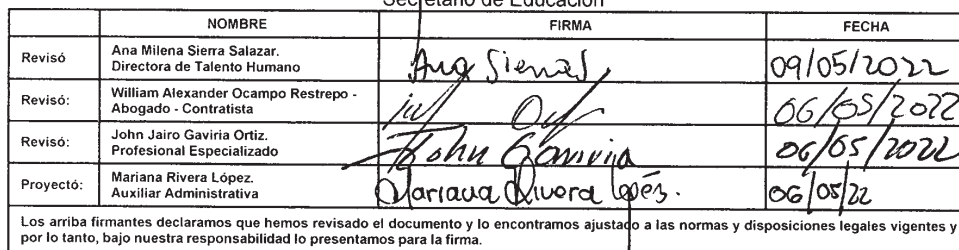 Secretario de Educación
NOMBRE FIRMA FECHA
Revisó Ana Milena Sierra Salazar. Directora de Talento Humano Ana Sierra S. 09/05/2022
Revisó: William Alexander Ocampo Restrepo - Abogado - Contratista 06/05/2022
Revisó: John Jairo Gaviria Ortiz. Profesional Especializado John Gaviria 06/05/2022
Proyectó: Mariana Rivera López. Auxiliar Administrativa Mariana Rivera López. 06/05/22
Los arriba firmantes declaramos que hemos revisado el documento y lo encontramos ajustado a las normas y disposiciones legales vigentes y
por lo tanto, bajo nuestra responsabilidad lo presentamos para la firma.